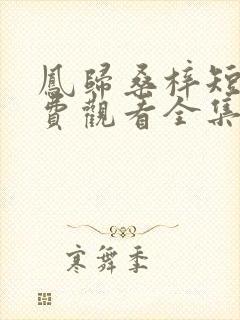 鳳歸桑梓短
費觀看全集
寒舞季